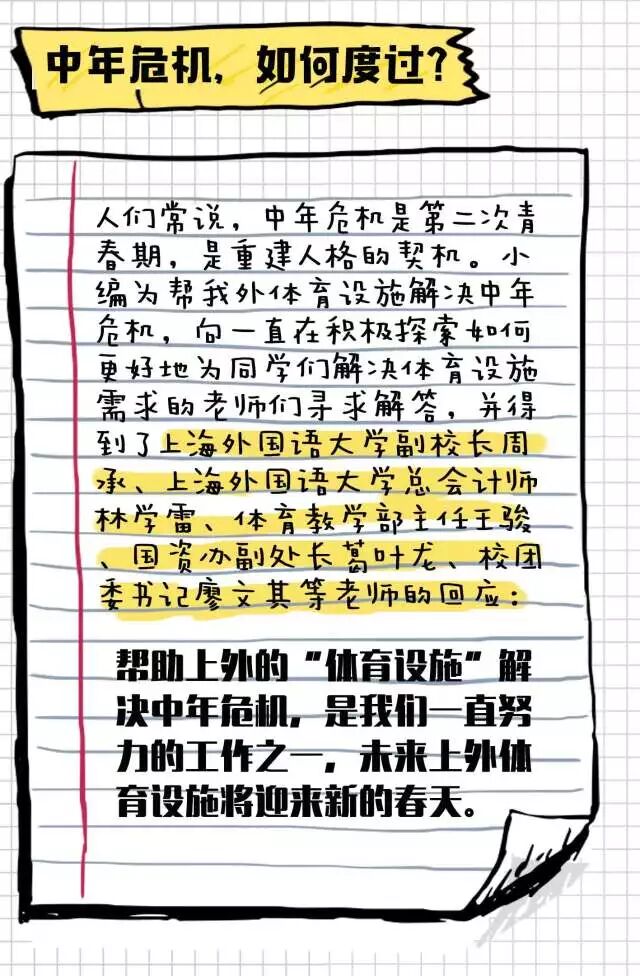 中年危机，如何度过？
人们常说，中年危机是第二次青
春期，是重建人格的契机。小
编为帮我外体育设施解决中年
危机，向一直在积极探索如何
更好地为同学们解决体育设施
需求的老师们寻求解答，并得
到了上海外国语大学副校长周
承、上海外国语大学总会计师
林学雷、体育教学部主任王骏
、国资办副处长葛叶龙、校团
委书记廖文其等老师的回应：
帮助上外的“体育设施”解
决中年危机，是我们一直努
力的工作之一，未来上外体
育设施将迎来新的春天。